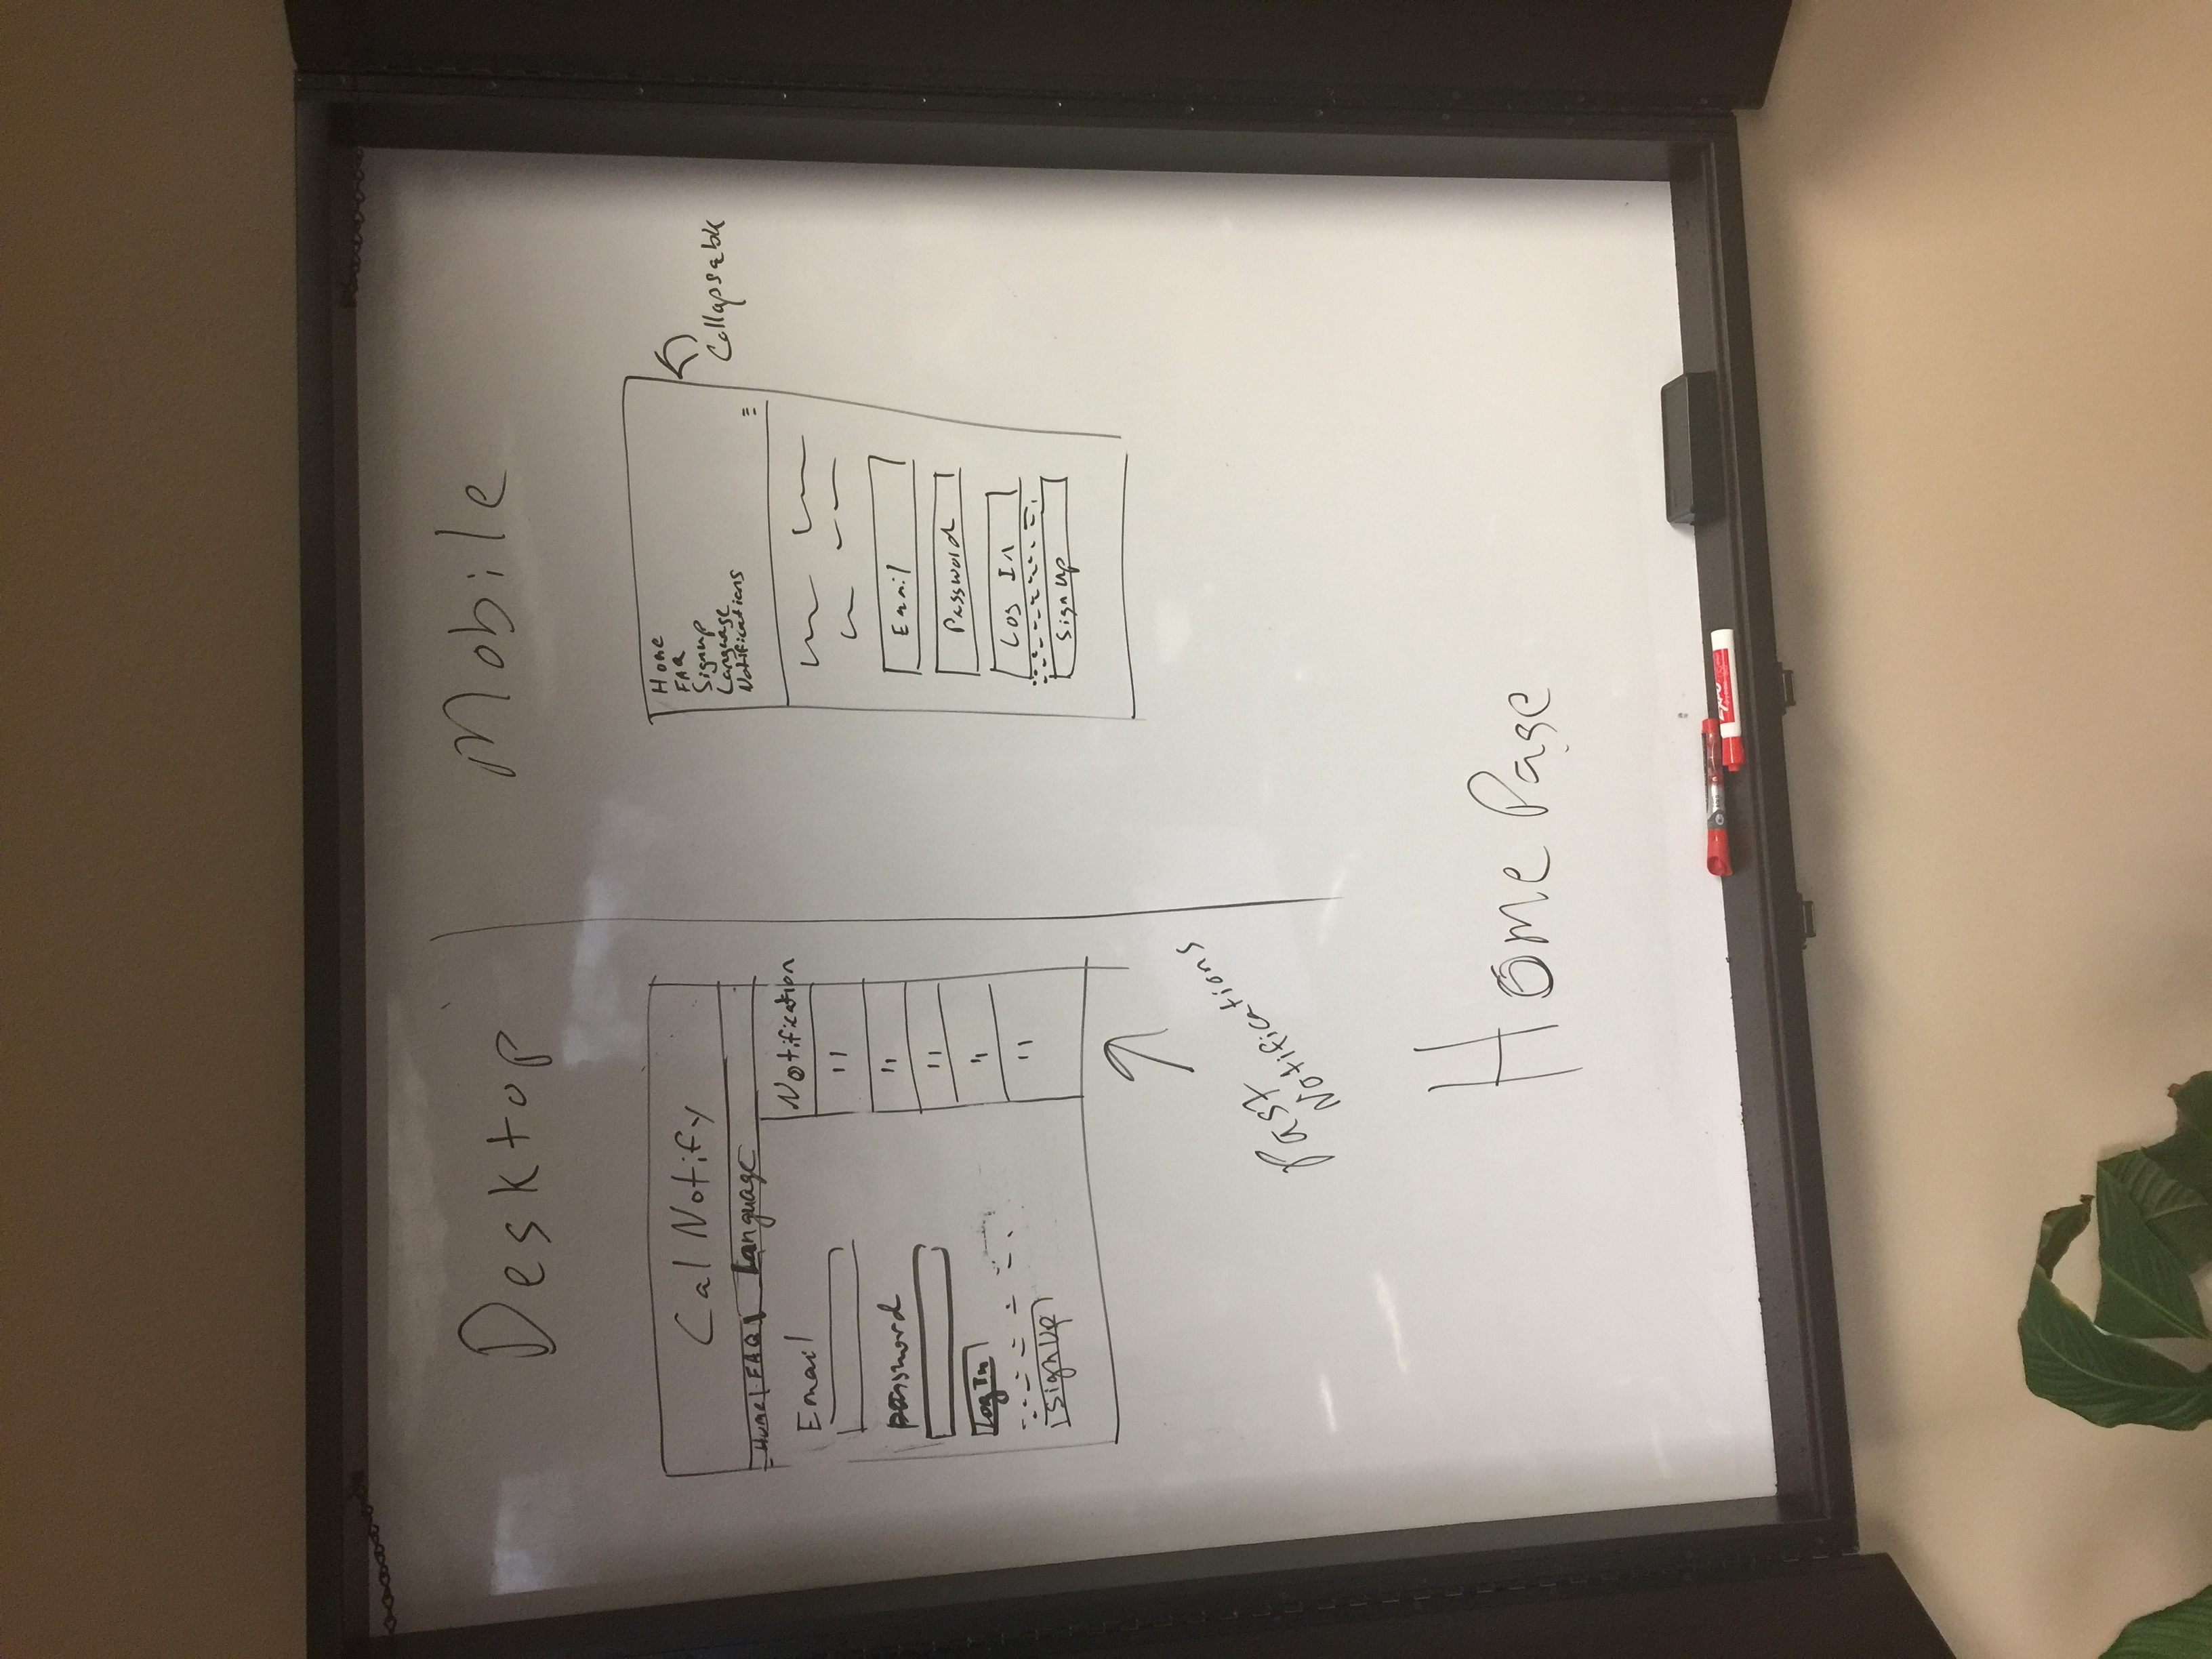 Desktop
Cal Notify
Home | FAQ | Language
Email
password
Log In
Sign Up
Notification
"
"
"
"
"
Past
Notifications
Mobile
Home
FAQ
Signup
Language
Notifications
Collapsable
Email
Password
Log In
Sign Up
Home Page
Expo